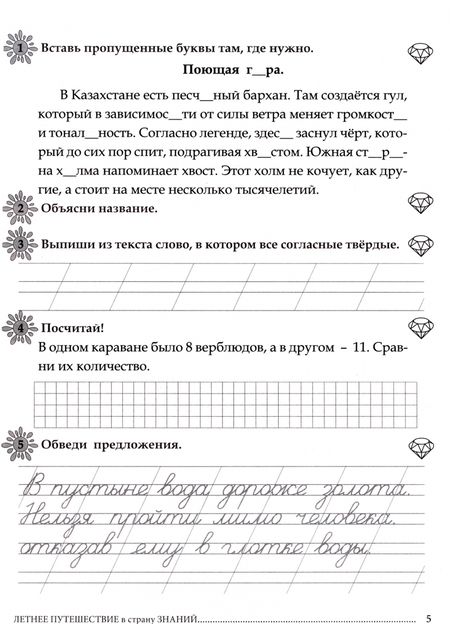 1 Вставь пропущенные буквы там, где нужно.
Поющая г__ра.
В Казахстане есть песч__ный бархан. Там создаётся гул,
который в зависимос__ти от силы ветра меняет громкост__
и тонал__ность. Согласно легенде, здес__ заснул чёрт, кото-
рый до сих пор спит, подрагивая хв__стом. Южная ст__р__-
на х__лма напоминает хвост. Этот холм не кочует, как дру-
гие, а стоит на месте несколько тысячелетий.
2 Объясни название.
3 Выпиши из текста слово, в котором все согласные твёрдые.
4 Посчитай!
В одном караване было 8 верблюдов, а в другом – 11. Срав-
ни их количество.
5 Обведи предложения.
В пустыне вода дороже золота.
Нельзя пройти мимо человека,
отказав ему в глотке воды.
ЛЕТНЕЕ ПУТЕШЕСТВИЕ в страну ЗНАНИЙ.......................................................... 5